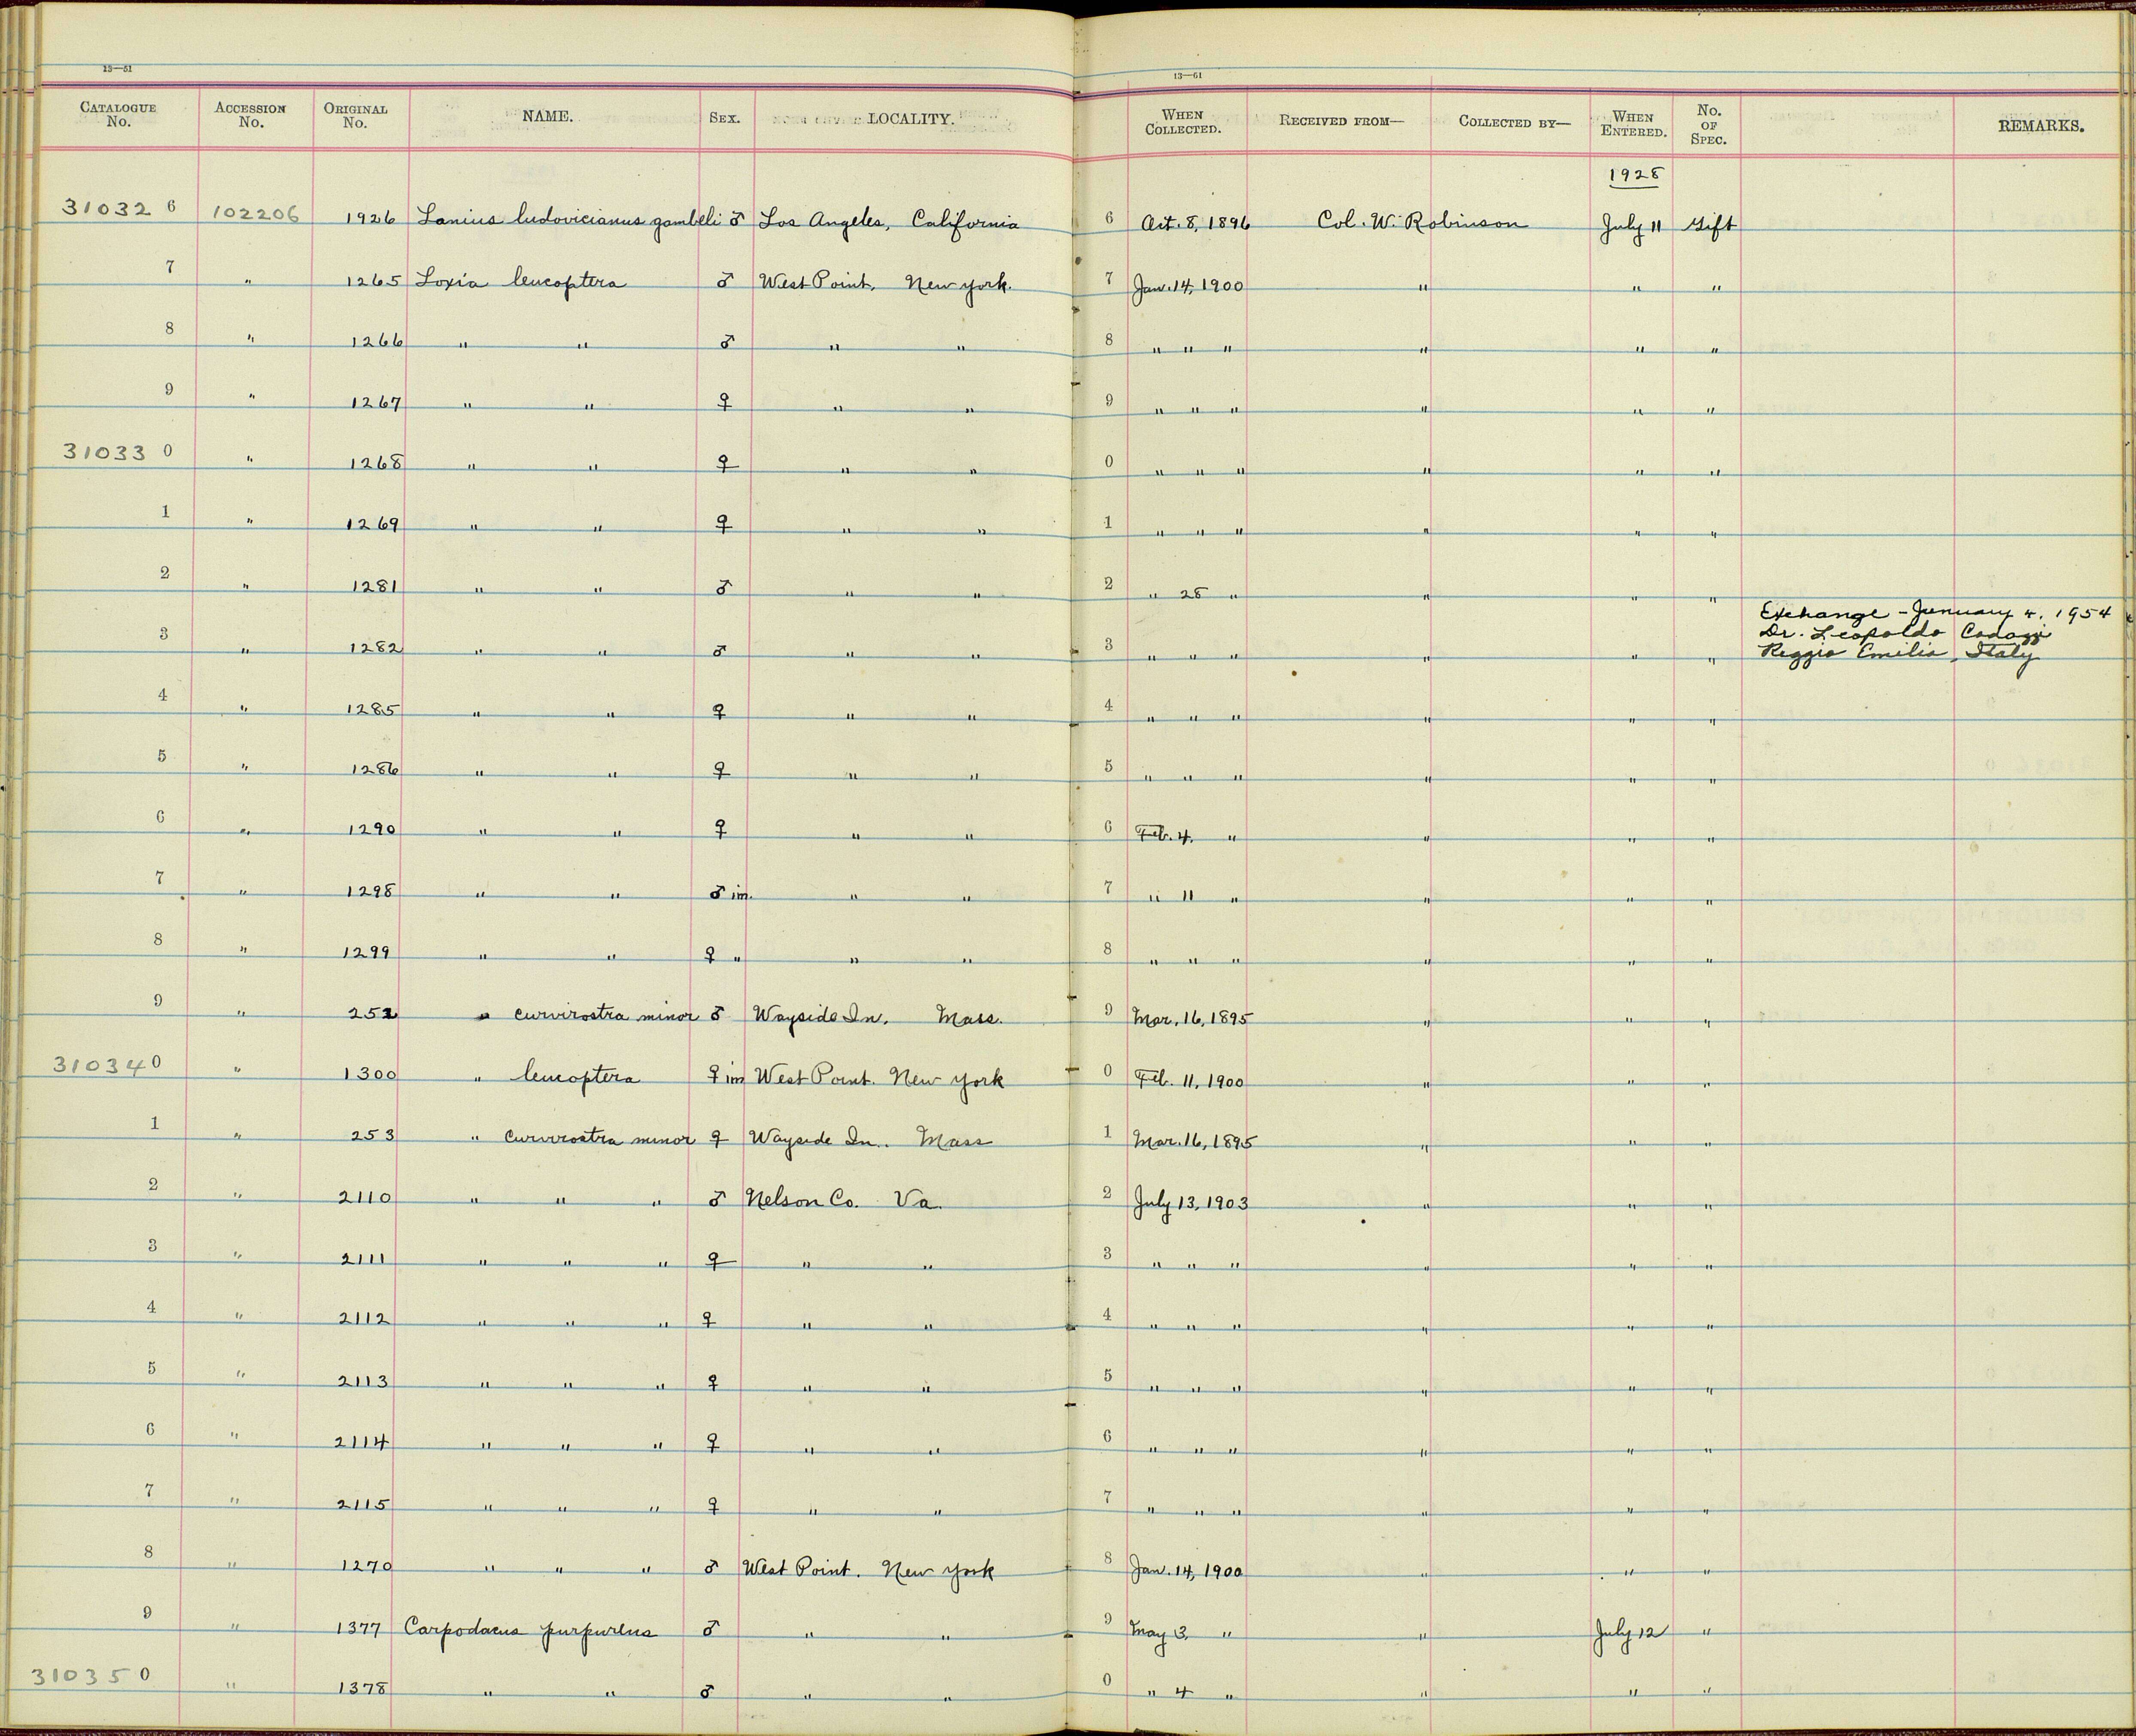 13—51
13—51
CATALOGUE No. ACCESSION No. ORIGINAL No. NAME. SEX. LOCALITY. WHEN COLLECTED. RECEIVED FROM— COLLECTED BY— WHEN ENTERED. No. OF SPEC. REMARKS.
1928
31032 6 102206 1926 Lanius ludovicianus gambeli ♂ Los Angeles, California 6 Oct. 8, 1896 Col. W. Robinson July 11 Gift
7 " 1265 Loxia leucoptera ♂ West Point, New York. 7 Jan. 14, 1900 " " "
8 " 1266 " " ♂ " " 8 " " " " " "
9 " 1267 " " ♀ " " 9 " " " " " "
31033 0 " 1268 " " ♀ " " 0 " " " " " "
1 " 1269 " " ♀ " " 1 " " " " " "
2 " 1281 " " ♂ " " 2 " 28 " " " "
Exchange - January 4, 1954
Dr. Leopoldo
3 " 1282 " " ♂ " " 3 " " " " " " Reggio Emilia, Italy
4 " 1285 " " ♀ " " 4 " " " " " "
5 " 1286 " " ♀ " " 5 " " " " " "
6 " 1290 " " ♀ " " 6 Feb. 4, " " " "
7 " 1298 " " ♂ im. " " 7 " 11 " " " "
8 " 1299 " " ♀ " " " 8 " " " " " "
9 " 252 " curvirostra minor ♂ Wayside In. Mass. 9 Mar. 16, 1895 " " "
31034 0 " 1300 " leucoptera ♀ im West Point. New York 0 Feb. 11, 1900 " " "
1 " 253 " curvirostra minor ♀ Wayside In. Mass 1 Mar. 16, 1895 " " "
2 " 2110 " " " ♂ Nelson Co. Va. 2 July 13, 1903 " " "
3 " 2111 " " " ♀ " " 3 " " " " " "
4 " 2112 " " " ♀ " " 4 " " " " " "
5 " 2113 " " " ♀ " " 5 " " " " " "
6 " 2114 " " " ♀ " " 6 " " " " " "
7 " 2115 " " " ♀ " " 7 " " " " " "
8 " 1270 " " " ♂ West Point. New York 8 Jan. 14, 1900 " " "
9 " 1377 Carpodacus purpureus ♂ " " 9 May 3, " " July 12 "
31035 0 " 1378 " " ♂ " " 0 " 4 " " " "